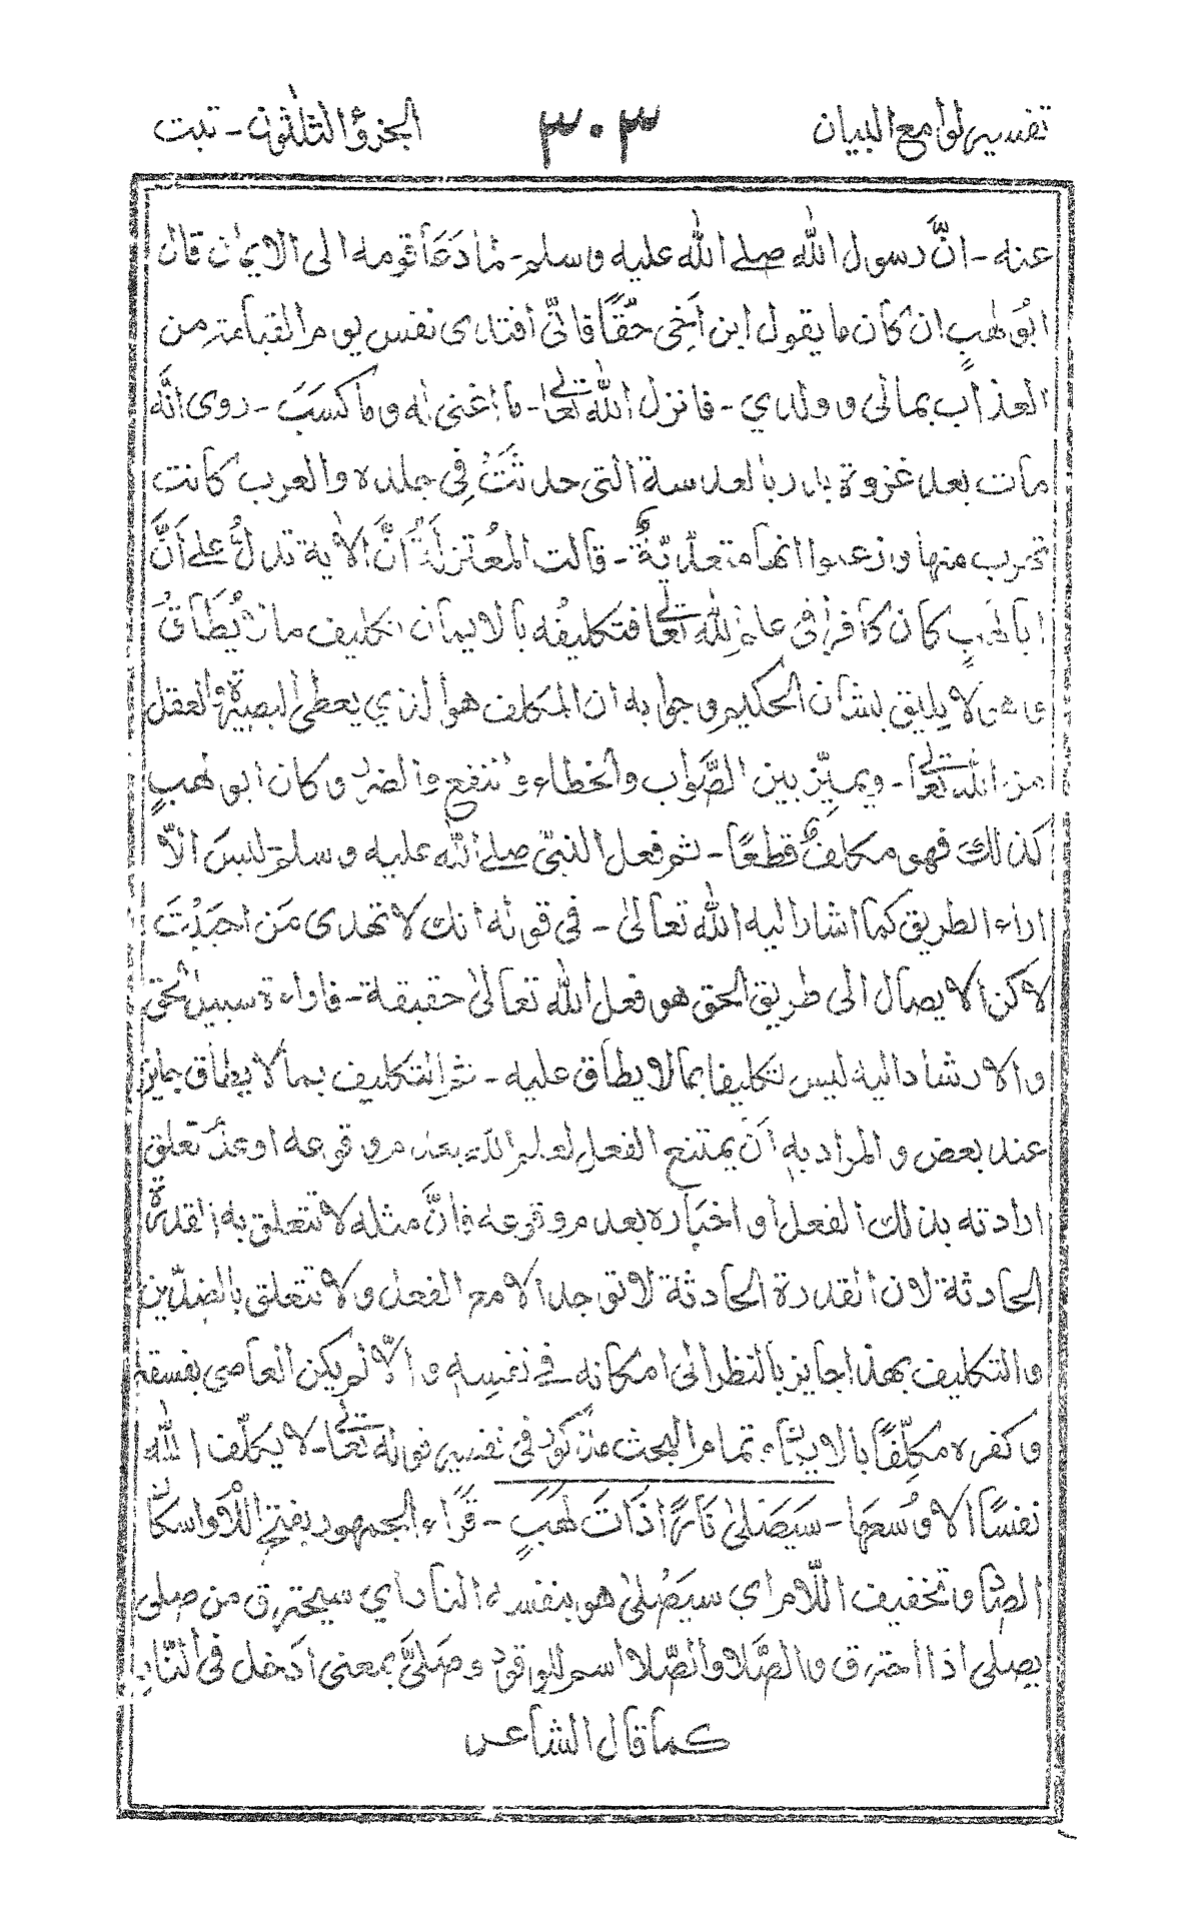 تفسير لوامع البيان ٣٠٣ الجزؤ الثلثون - تبت
عنه - انَّ رسول الله صلے الله عليه وسلم - لما دَعَا قومه الى الايمان قال
ابُو لهبٍ ان كان ما يقول ابن اَخِى حَقًّا فانّى افتدى نفسى يوم القيامة من
العذاب بمالى وولدي - فانزل الله تعالے - ما اغنى عنه وما كسَبَ - روى انَّه
مات بعد غزوة بدر بالعدسة التى حدثَتْ فِى جلده والعرب كانت
تهرب منها وزعموا انها متعدّيّةٌ - قالت المُعتزلَةُ انَّ الاٰية تدلُّ علے اَنَّ
ابا لهبٍ كان كافرا فى علم الله تعالے فتكليفُه بالايمان تكليف ما لا يُطَاقُ
لا يليق بشان الحكيم وجوابه ان المكلف هو الذي يعطى البصيرة والعقل
من الله تعالے - ويميّز بين الصَّواب والخطاء والنفع والضرر وكان ابو لهبٍ
كذلك فهو مكلفٌ قطعًا - ثم فعل النبىّ صلے الله عليه وسلم ليسَ الاّ
اراء الطريق كما اشار اليه الله تعالىٰ - فى قوله انك لا تهدى مَن احبَبْتَ
لاكن الايصال الى طريق الحق هو فعل الله تعالىٰ حقيقة - فاراءة سبيل الحق
والارشاد اليه ليس تكليفا بما لا يطاق عليه - ثم التكليف بما لا يطاق جايز
عند بعض والمراد به اَن يمتنع الفعل لعلم الله بعدم وقوعه او عدم تعلق
ارادته بذلك الفعل او اخباره بعدم وقوعه فانَّ مثله لا تتعلق به القدرةُ
الحادثة لان القدرة الحادثة لا توجد الا مع الفعل ولا تتعلق بالضدّين
والتكليف بهذا جايز بالنظر الى امكانه فے نفسِه والاّ لم يكن العاصى بفسقه
وكفره مكلّفًا بالايمان وتمام البحث مذكور فى تفسير قوله تعالے - لا يكلّف الله
نفسًا الا وُسعَها - سَيَصْلىٰ نَارًا ذَاتَ لَهَبٍ - قَرَاء الجمهور بفتح اللاّ واسكان
الصاد وتخفيف اللّام اي سيَصْلىٰ هو بنفسه النار اي سيحترق من صلى
يصلى اذا احترق والصَّلا والصّلا اسم للوقود وصَلىَّ بمعنى ادَخل فى النَّار
كما قال الشاعر